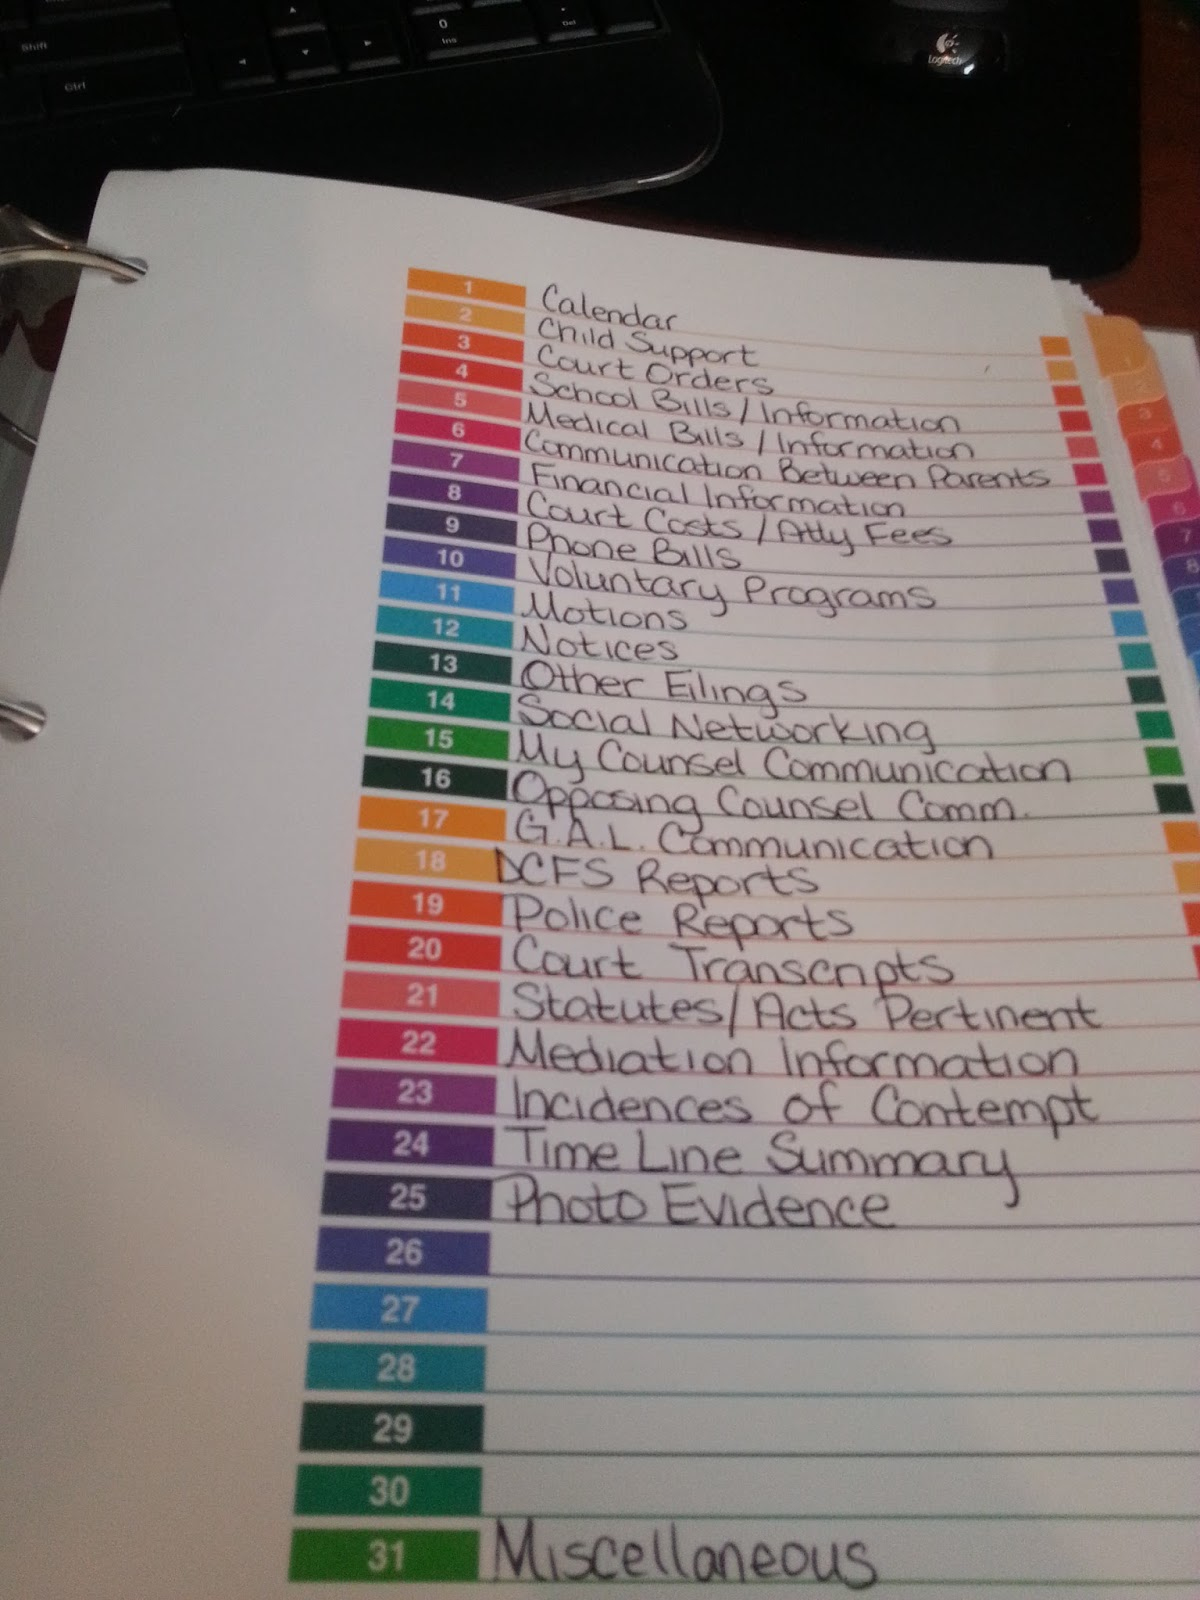 Shift
Ctrl
0
Ins
Del
Logitech
1 Calendar
2 Child Support
3 Court Orders
4 School Bills / Information
5 Medical Bills / Information
6 Communication Between Parents
7 Financial Information
8 Court Costs / Atty Fees
9 Phone Bills
10 Voluntary Programs
11 Motions
12 Notices
13 Other Filings
14 Social Networking
15 My Counsel Communication
16 Opposing Counsel Comm.
17 G.A.L. Communication
18 DCFS Reports
19 Police Reports
20 Court Transcripts
21 Statutes/Acts Pertinent
22 Mediation Information
23 Incidences of Contempt
24 Time Line Summary
25 Photo Evidence
26
27
28
29
30
31 Miscellaneous
1
2
3
4
5
6
7
8